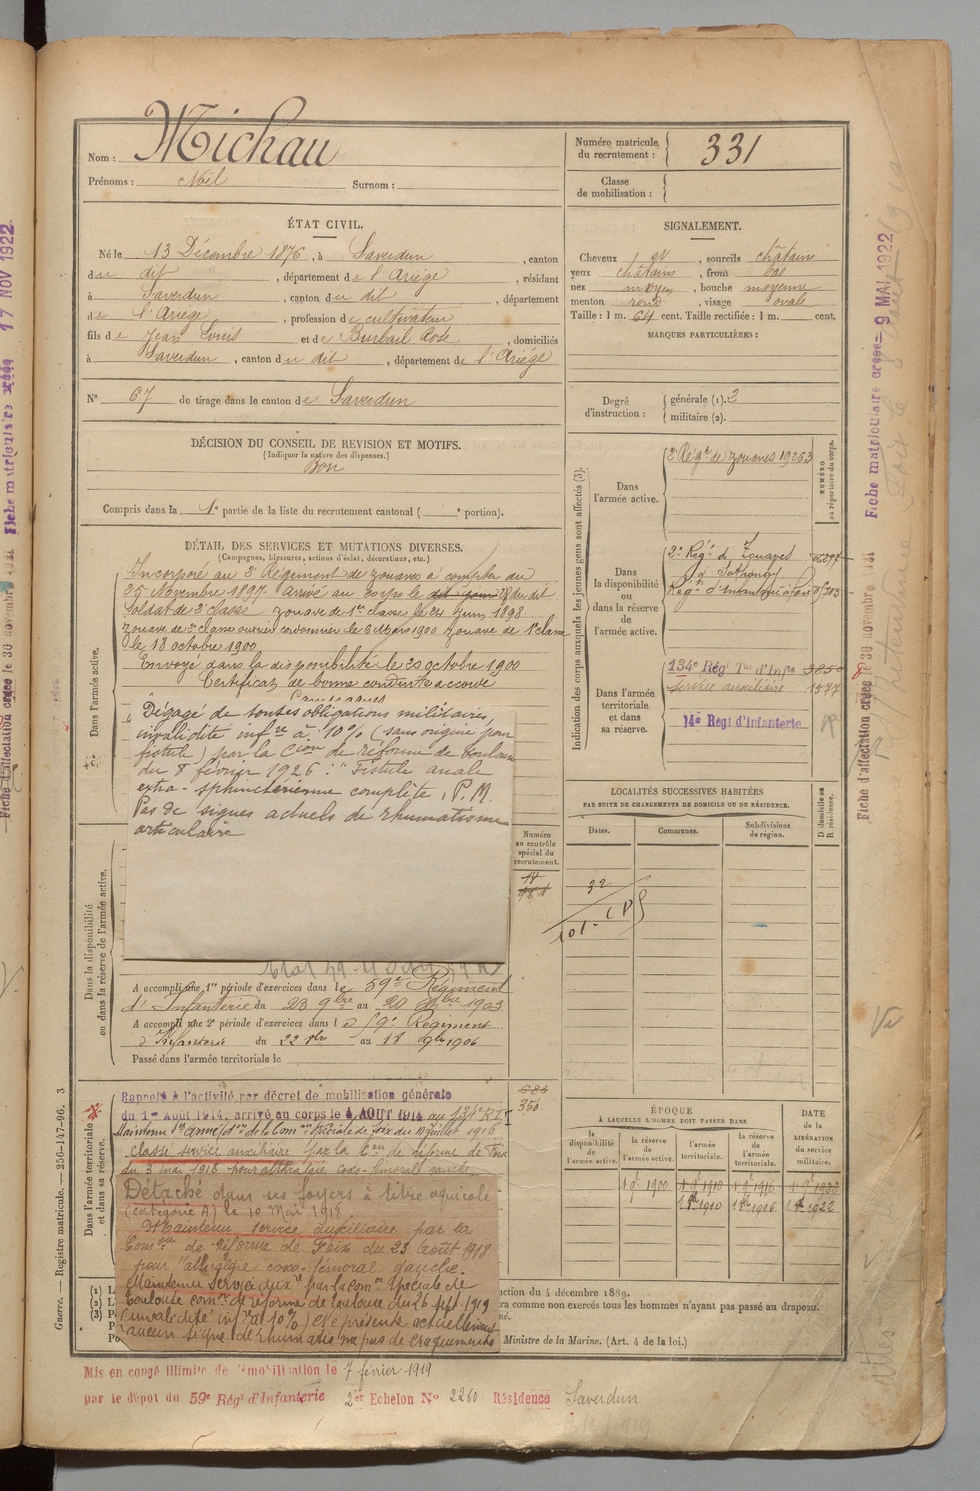 Nom : Michau
Prénoms : Noël Surnom :
Numéro matricule du recrutement : 331
Classe de mobilisation :
ÉTAT CIVIL.
Né le 13 Décembre 1876, à Saverdun, canton
du dit, département de l'Ariège, résidant
à Saverdun, canton du dit, département
de l'Ariège, profession de cultivateur
fils de Jean Louis et de Rose, domiciliés
à Saverdun, canton du dit, département de l'Ariège
N° 67 de tirage dans le canton de Saverdun
SIGNALEMENT.
Cheveux, sourcils châtains
yeux châtains, front bas
nez moyen, bouche moyenne
menton rond, visage ovale
Taille : 1 m. 64 cent. Taille rectifiée : 1 m. cent.
MARQUES PARTICULIÈRES :
Degré d'instruction : générale (1). 2
militaire (2).
DÉCISION DU CONSEIL DE REVISION ET MOTIFS.
(Indiquer la nature des dispenses.)
Bon
Compris dans la 1e partie de la liste du recrutement cantonal ( e portion).
DÉTAIL DES SERVICES ET MUTATIONS DIVERSES.
(Campagnes, blessures, actions d'éclat, décorations, etc.)
Dans l'armée active.
Incorporé au 2e Régiment de zouaves à compter du
25 Novembre 1897. Arrivé au corps le dit jour 28 du dit
Soldat de 2e classe zouave de 1re classe le 24 Juin 1898
zouave de 2e classe ouvrier cordonnier le 6 Mars 1900 zouave de 1e classe
le 18 octobre 1900
Envoyé dans la disponibilité le 20 octobre 1900
Certificat de bonne conduite accordé
Dégagé de toutes obligations militaires,
invalidité infre à 10% (sans origine pour
fistule) par la Cion de réforme de Toulouse
du 8 février 1926 : "Fistule anale
extra-sphinctérienne complète, P.M.
Pas de signes actuels de rhumatisme
articulaire
Dans la disponibilité ou dans la réserve de l'armée active.
Numéro au contrôle spécial du recrutement.
A accompli une 1re période d'exercices dans le 59e Régiment
d'Infanterie du 23 9bre au 20 Xbre 1903
A accompli une 2e période d'exercices dans le 59e Régiment
d'Infanterie du 22 au 18 1906
Passé dans l'armée territoriale le
Dans l'armée territoriale et dans sa réserve.
Rappelé à l'activité par décret de mobilisation générale
du 1er Août 1914, arrivé au corps le 4 AOUT 1914 au 134e R I T
Maintenu se armé don de la Com on spéciale de Foix du 10 Juillet 1916
Classé service auxiliaire par la Con de réforme de Foix
du 3 mai 1918 pour arthralgie coxo-fémorale gauche
Détaché dans ses foyers à titre agricole
(catégorie A) le 10 Mai 1918
Maintenu service auxiliaire par la
Comon de Réforme de Foix du 23 août 1918
pour "arthralgie coxo-fémoral gauche.
Maintenu service auxre par la Comon spéciale de
Toulouse comon de réforme de Toulouse du 26 sept 1919
(invalidité infre à 10%) Ne présente actuellement
aucun signe de rhumatisme pas de craquements
683
350
Indication des corps auxquels les jeunes gens sont affectés (3).
NUMÉRO au répertoire du corps.
Dans l'armée active.
2e Régt de zouaves 19263
Dans la disponibilité ou dans la réserve de l'armée active.
2e Régt d Zouaves
à Sathonay
Régt d'Infanterie à Foix
Dans l'armée territoriale et dans sa réserve.
134e Régt Tal d'Infie
Service auxiliaire 1577
14e Regt d'Infanterie
LOCALITÉS SUCCESSIVES HABITÉES
PAR SUITE DE CHANGEMENTS DE DOMICILE OU DE RÉSIDENCE.
Dates. Communes. Subdivisions de région. D domicile ou R résidence.
ÉPOQUE
À LAQUELLE L'HOMME DOIT PASSER DANS
DATE DE LA LIBÉRATION du service militaire.
la disponibilité de l'armée active. la réserve de l'armée active. l'armée territoriale. la réserve de l'armée territoriale.
1 9bre 1900 1 9bre 1910 1 9bre 1916 1 9bre 1922
1 8bre 1910 1 8bre 1916 1 8bre 1922
ction du 4 décembre 1889.
ra comme non exercés tous les hommes n'ayant pas passé au drapeau.
né.
Ministre de la Marine. (Art. 4 de la loi.)
Mis en congé illimité de démobilisation le 7 février 1919
par le dépôt du 59e Régt d'Infanterie 2er Echelon N° 2260 Résidence Saverdun
Guerre. — Registre matricule. — 256-147-96. 3
Fiche matriculaire créée 9 MAI 1922
Fiche d'affectation créée le 30 novembre 1921
17 NOV 1922
Fiche matriculaire créée
Fiche d'affectation créée le 30 novembre 1921